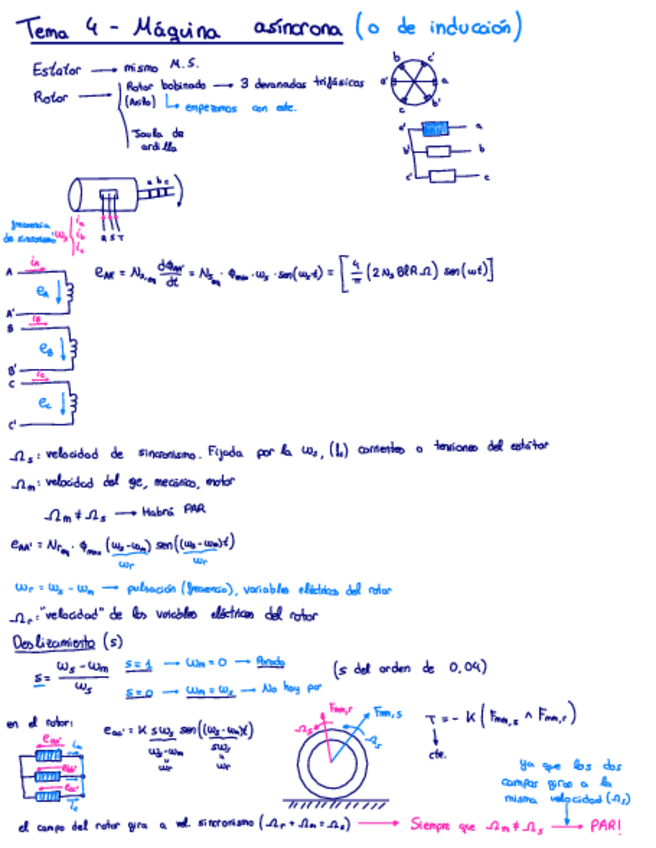 Tema 4 - Máquina asíncrona (o de inducción)
Estator → mismo M.S.
Rotor → Rotor bobinado → 3 devanados trifásicos
(Anillo) ↳ empezamos con este.
Jaula de
ardilla
b c'
a' a
c b'
a' a
b' b
c' c
a b c
R S T
frecuencia
de sincronismo ωs { ia
ib
ic
A iA
eA
A'
B iB
eB
B'
C ic
ec
C'
eAA' = Ns,eq dΦAA'/dt = Ns,eq · Φmax · ωs · sen(ωs·t) = [4/π (2Ns BlRΩ) sen(ωt)]
Ωs: velocidad de sincronismo. Fijada por la ωs, (fs) corrientes o tensiones del estátor
Ωm: velocidad del eje, mecánico, rotor
Ωm ≠ Ωs → Habrá PAR
eAA' = Nreq · Φmax (ωs-ωm) sen((ωs-ωm)t)
ωr ωr
ωr = ωs - ωm → pulsación (frecuencia), variables eléctricas del rotor
Ωr: "velocidad" de las variables eléctricas del rotor
Deslizamiento (s)
s = (ωs - ωm)/ωs s=1 → ωm = 0 → Parado (s del orden de 0,04)
s=0 → ωm = ωs → No hay par
en el rotor: eaa' = K s ωs sen((ωs-ωm)t)
ωs-ωm sωs
ωr ωr
eaa' ia
ebb'
ecc'
ic
Fmm,r Fmm,s
Ωs Ωs
T = - K (Fmm,s ∧ Fmm,r)
cte.
ya que los dos
campos giran a la
misma velocidad (Ωs)
el campo del rotor gira a vel. sincronismo (Ωr + Ωm = Ωs) → Siempre que Ωm ≠ Ωs → PAR!